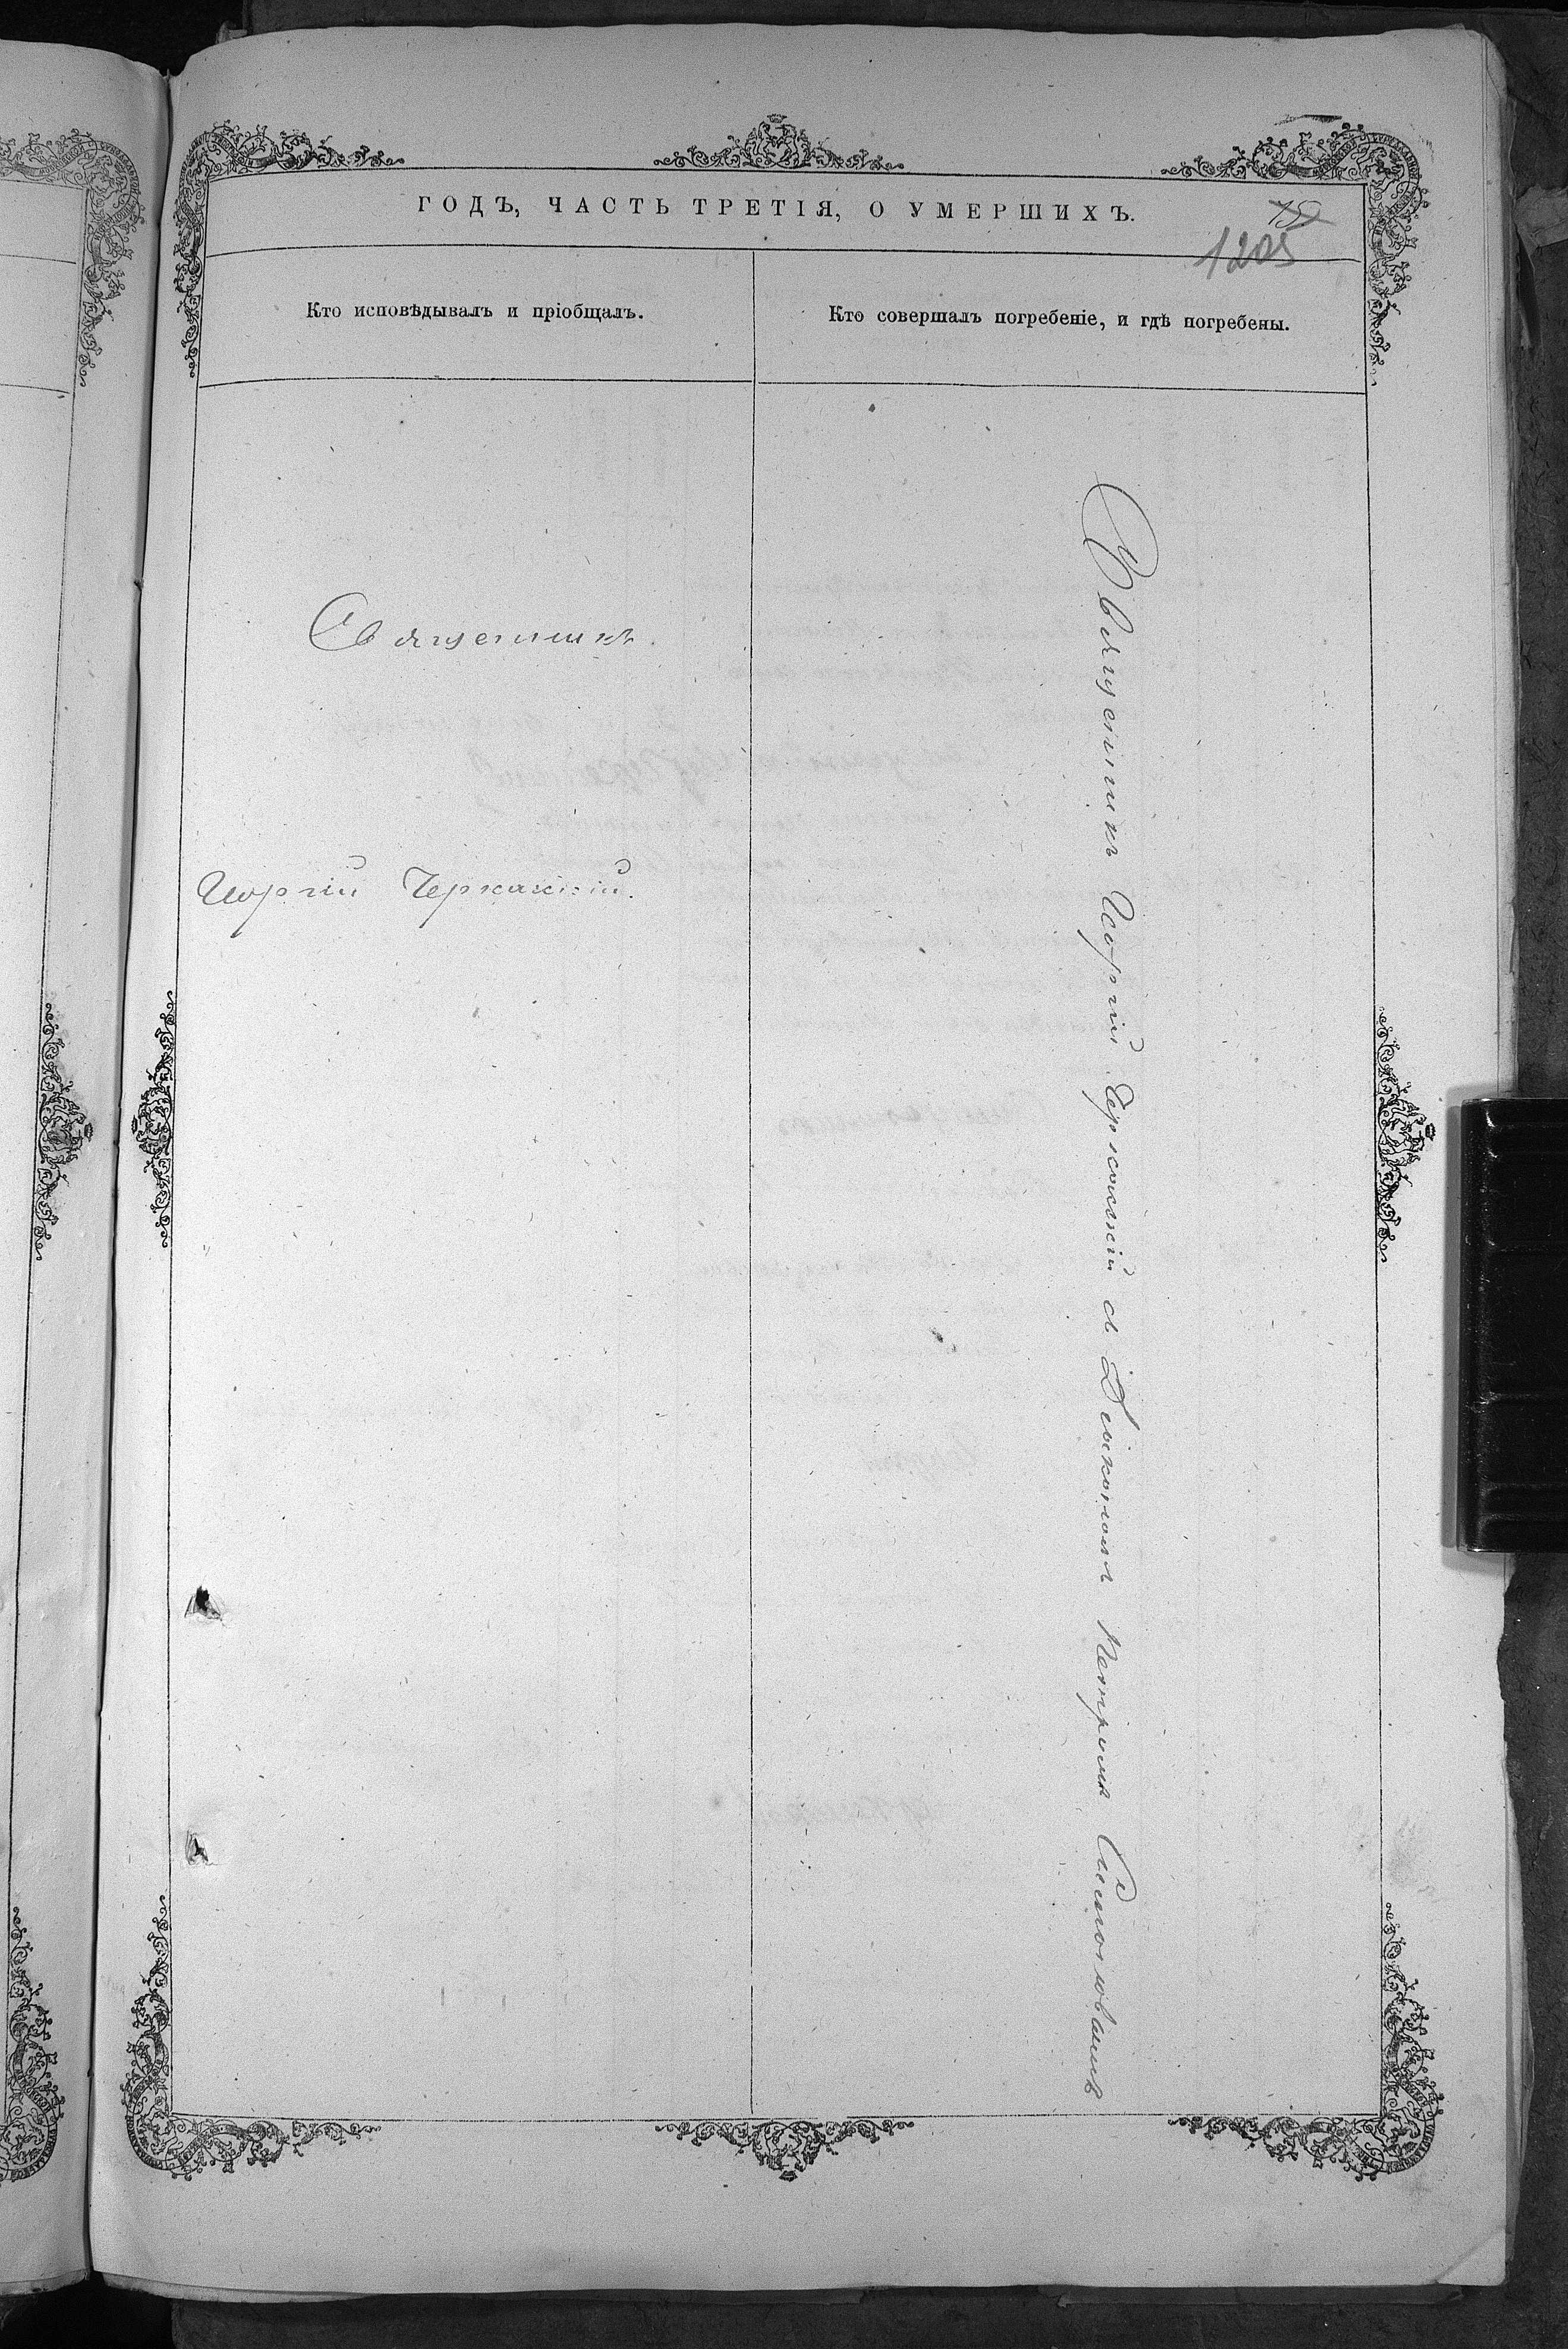 ГОДЪ, ЧАСТЬ ТРЕТІЯ, О УМЕРШИХЪ.
1205
Кто исповѣдывалъ и пріобщалъ.
Кто совершалъ погребеніе, и гдѣ погребены.
Священникъ
Георгій Черкаскій.
Священникъ Георгій Черкаскій съ Діакономъ Петромъ